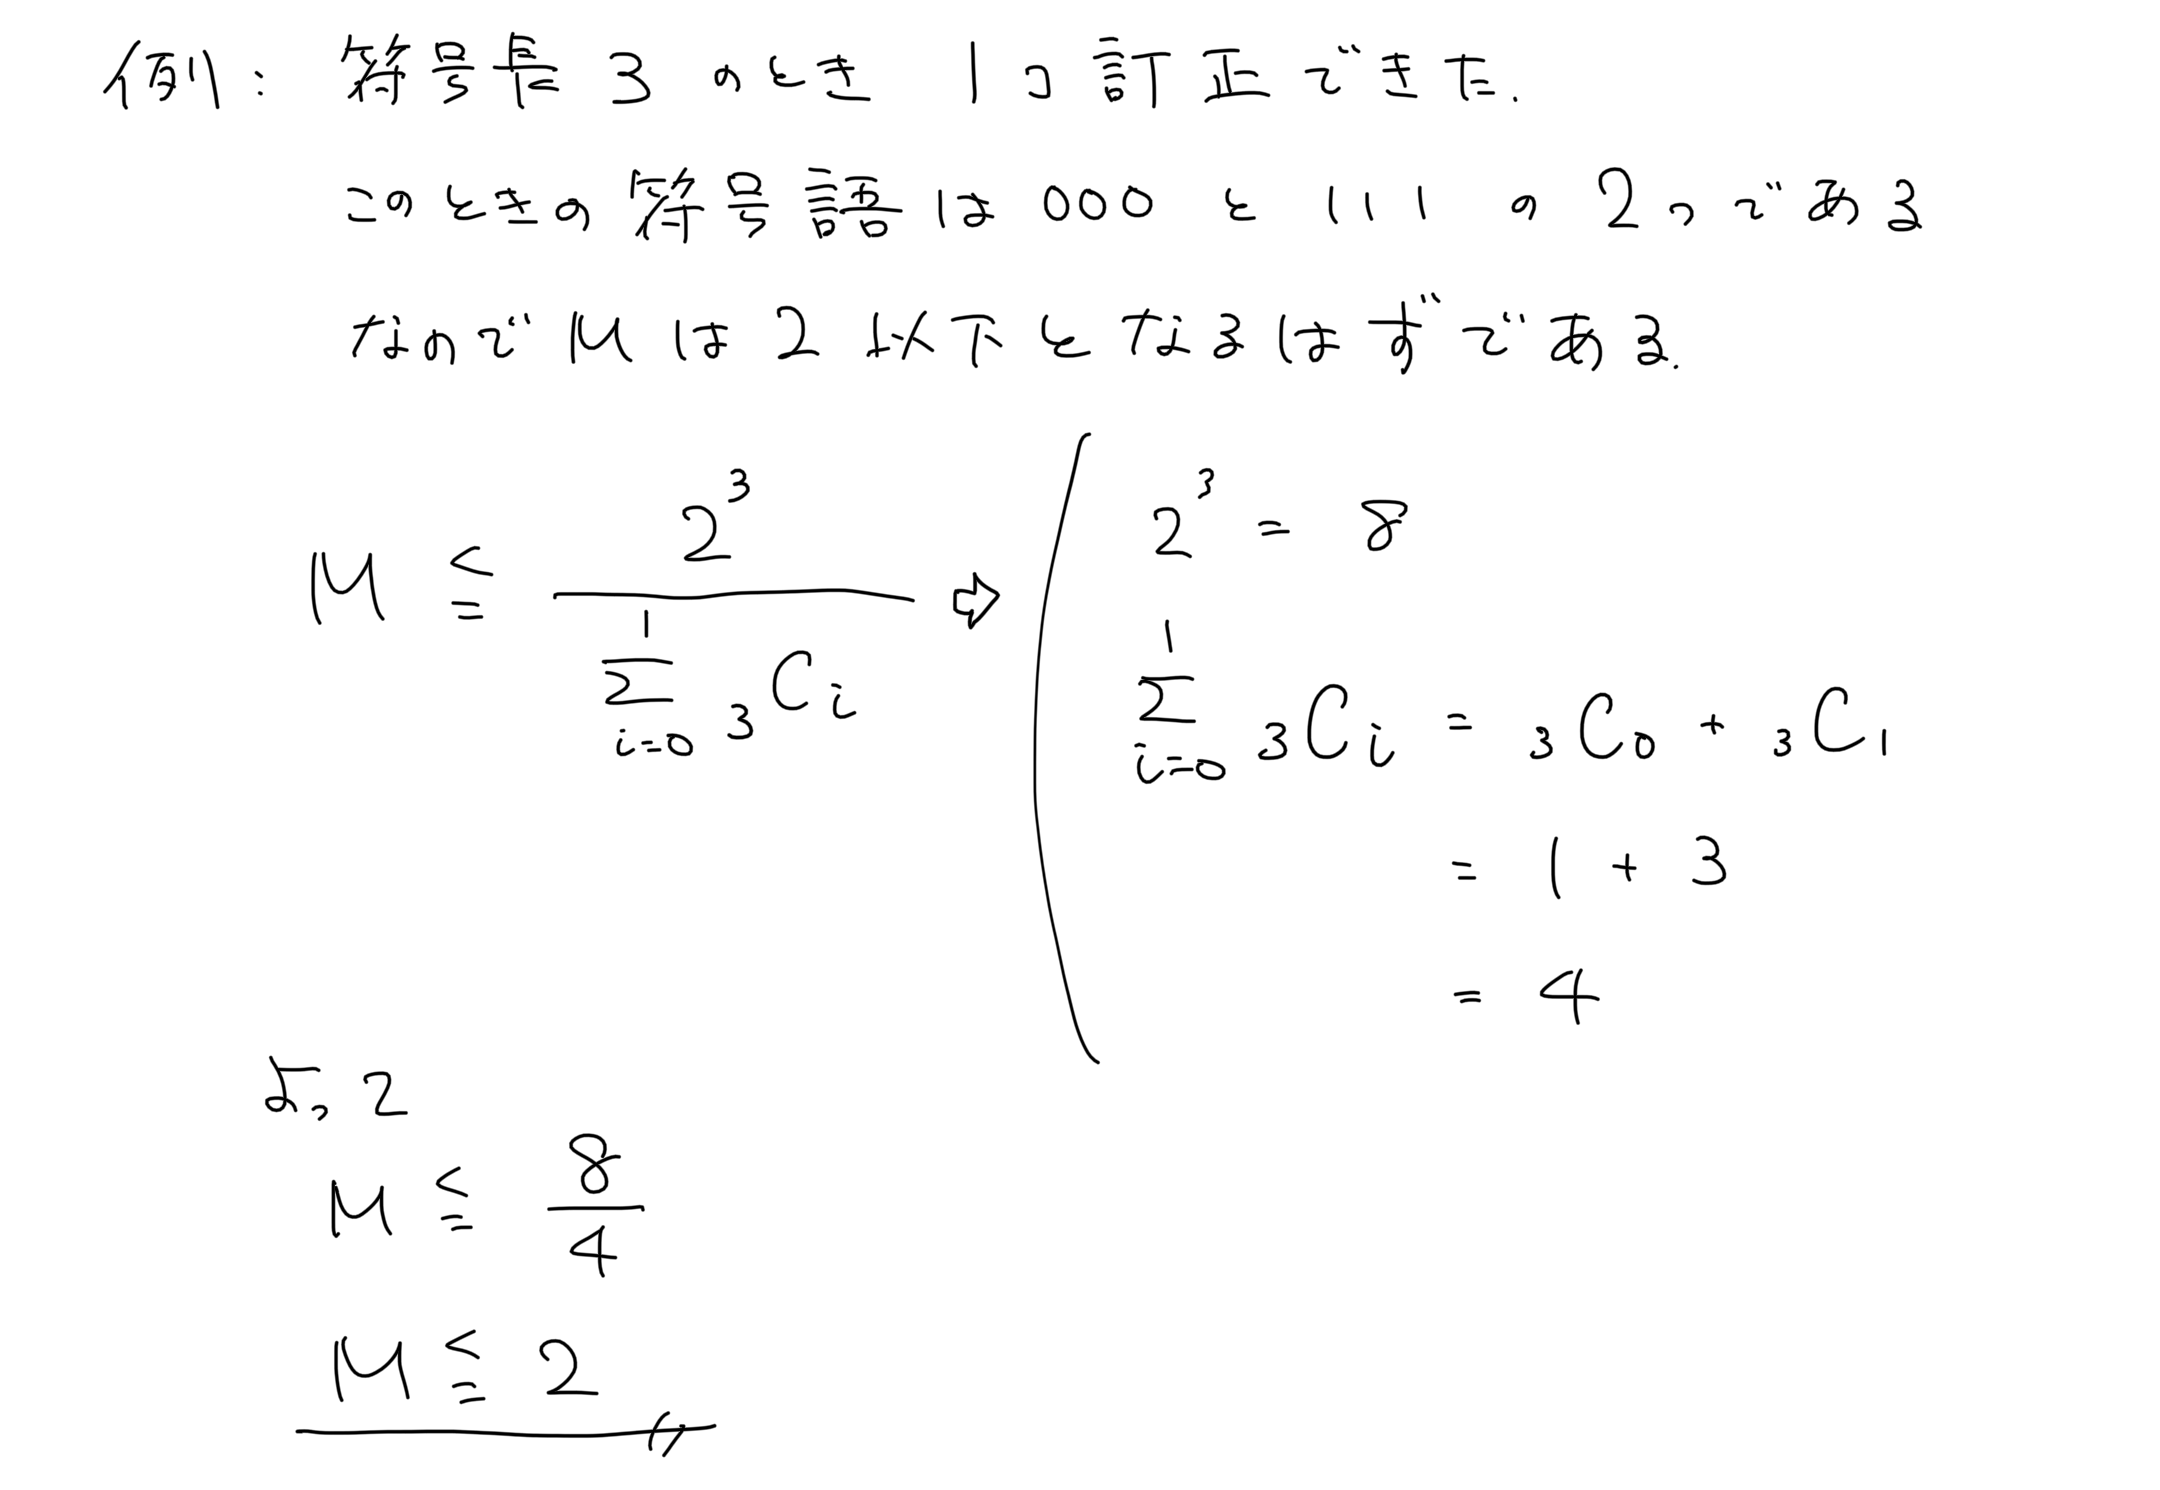 例: 符号長 3 のとき 1コ訂正できた.
このときの符号語は 000 と 111 の 2つである
なので M は 2 以下となるはずである.
M ≦ 2^3 / Σ_{i=0}^{1} 3Ci ⇨
2^3 = 8
Σ_{i=0}^{1} 3Ci = 3C0 + 3C1
= 1 + 3
= 4
よって
M ≦ 8/4
M ≦ 2